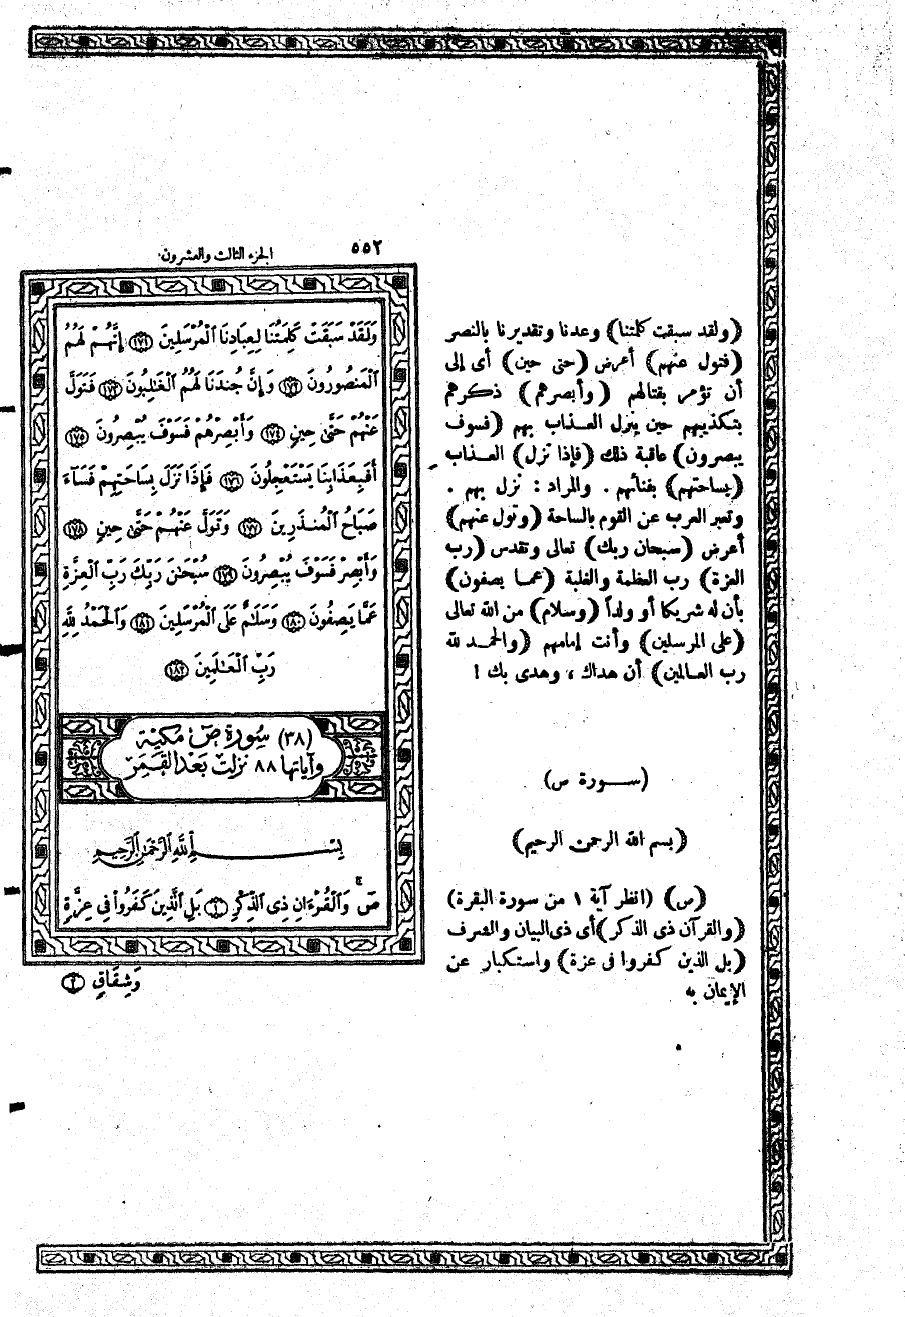 ٥٥٢
الجزء الثالث والعشرون
وَلَقَدْ سَبَقَتْ كَلِمَتُنَا لِعِبَادِنَا ٱلْمُرْسَلِينَ ١٧١ إِنَّهُمْ لَهُمُ
ٱلْمَنصُورُونَ ١٧٢ وَإِنَّ جُندَنَا لَهُمُ ٱلْغَٰلِبُونَ ١٧٣ فَتَوَلَّ
عَنْهُمْ حَتَّىٰ حِينٍ ١٧٤ وَأَبْصِرْهُمْ فَسَوْفَ يُبْصِرُونَ ١٧٥
أَفَبِعَذَابِنَا يَسْتَعْجِلُونَ ١٧٦ فَإِذَا نَزَلَ بِسَاحَتِهِمْ فَسَآءَ
صَبَاحُ ٱلْمُنذَرِينَ ١٧٧ وَتَوَلَّ عَنْهُمْ حَتَّىٰ حِينٍ ١٧٨
وَأَبْصِرْ فَسَوْفَ يُبْصِرُونَ ١٧٩ سُبْحَٰنَ رَبِّكَ رَبِّ ٱلْعِزَّةِ
عَمَّا يَصِفُونَ ١٨٠ وَسَلَٰمٌ عَلَى ٱلْمُرْسَلِينَ ١٨١ وَٱلْحَمْدُ لِلَّهِ
رَبِّ ٱلْعَٰلَمِينَ ١٨٢
(٣٨) سُورَة صٓ مَكيَّة
وآياتها ٨٨ نزلت بَعْد القَمَر
بِسْمِ ٱللَّهِ ٱلرَّحْمَٰنِ ٱلرَّحِيمِ
صٓ وَٱلْقُرْءَانِ ذِى ٱلذِّكْرِ ١ بَلِ ٱلَّذِينَ كَفَرُوا۟ فِى عِزَّةٍ
وَشِقَاقٍ ٢
(ولقد سبقت كلمتنا) وعدنا وتقديرنا بالنصر
(فتول عنهم) أعرض (حتى حين) أى إلى
أن تؤمر بقتالهم (وأبصرهم) ذكرهم
بتكذيبهم حين ينزل العذاب بهم (فسوف
يبصرون) عاقبة ذلك (فإذا نزل) العذاب
(بساحتهم) بفنائهم . والمراد : نزل بهم .
وتعبر العرب عن القوم بالساحة (وتول عنهم)
أعرض (سبحان ربك) تعالى وتقدس (رب
العزة) رب العظمة والغلبة (عما يصفون)
بأن له شريكا أو ولداً (وسلام) من الله تعالى
(على المرسلين) وأنت إمامهم (والحمد لله
رب العالمين) أن هداك ، وهدى بك !
(سورة ص)
(بسم الله الرحمن الرحيم)
(ص) (انظر آية ١ من سورة البقرة)
(والقرآن ذى الذكر) أى ذى البيان والشرف
(بل الذين كفروا فى عزة) واستكبار عن
الإيمان به